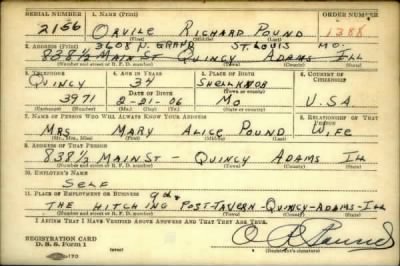 SERIAL NUMBER 1. NAME (Print) ORDER NUMBER
2156 ORVILLE RICHARD POUND 1388
2. ADDRESS (Print) 3608 N. GRAND ST. LOUIS MO.
838 1/2 MAIN ST QUINCY ADAMS ILL
(Number and street or R. F. D. number) (Town) (County) (State)
3. TELEPHONE 4. AGE IN YEARS 5. PLACE OF BIRTH 6. COUNTRY OF CITIZENSHIP
QUINCY 34 SHELL KNOB
DATE OF BIRTH (Town or county)
3971 2-21-06 MO U.S.A
(Exchange) (Number) (Mo.) (Day) (Yr.) (State or country)
7. NAME OF PERSON WHO WILL ALWAYS KNOW YOUR ADDRESS 8. RELATIONSHIP OF THAT PERSON
MRS MARY ALICE POUND WIFE
(Mr., Mrs., Miss) (First) (Middle) (Last)
9. ADDRESS OF THAT PERSON
838 1/2 MAIN ST - QUINCY ADAMS ILL
(Number and street or R. F. D. number) (Town) (County) (State)
10. EMPLOYER'S NAME
SELF
11. PLACE OF EMPLOYMENT OR BUSINESS
THE HITCHING POST-TAVERN-QUINCY-ADAMS-ILL
(Number and street or R. F. D. number) (Town) (County) (State)
I AFFIRM THAT I HAVE VERIFIED ABOVE ANSWERS AND THAT THEY ARE TRUE.
REGISTRATION CARD
D. S. S. Form 1 O R Pound
(Registrant's signature)